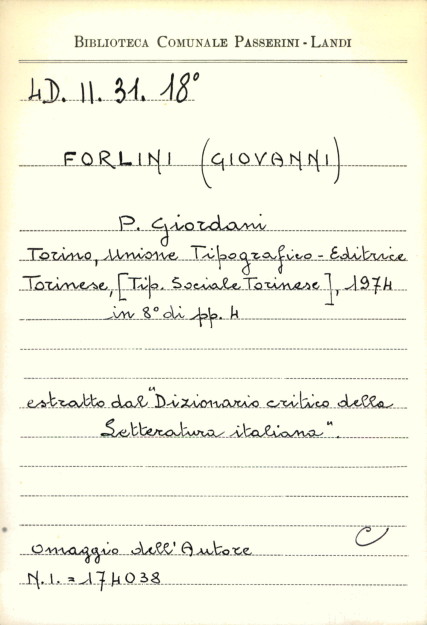 BIBLIOTECA COMUNALE PASSERINI - LANDI
4D. II. 31. 18°
FORLINI (GIOVANNI)
P. Giordani
Torino, Unione Tipografico - Editrice
Torinese, [Tip. Sociale Torinese], 1974
in 8° di pp. 4
estratto dal "Dizionario critico della
Letteratura italiana".
C
Omaggio dell'Autore
N.I. = 174038